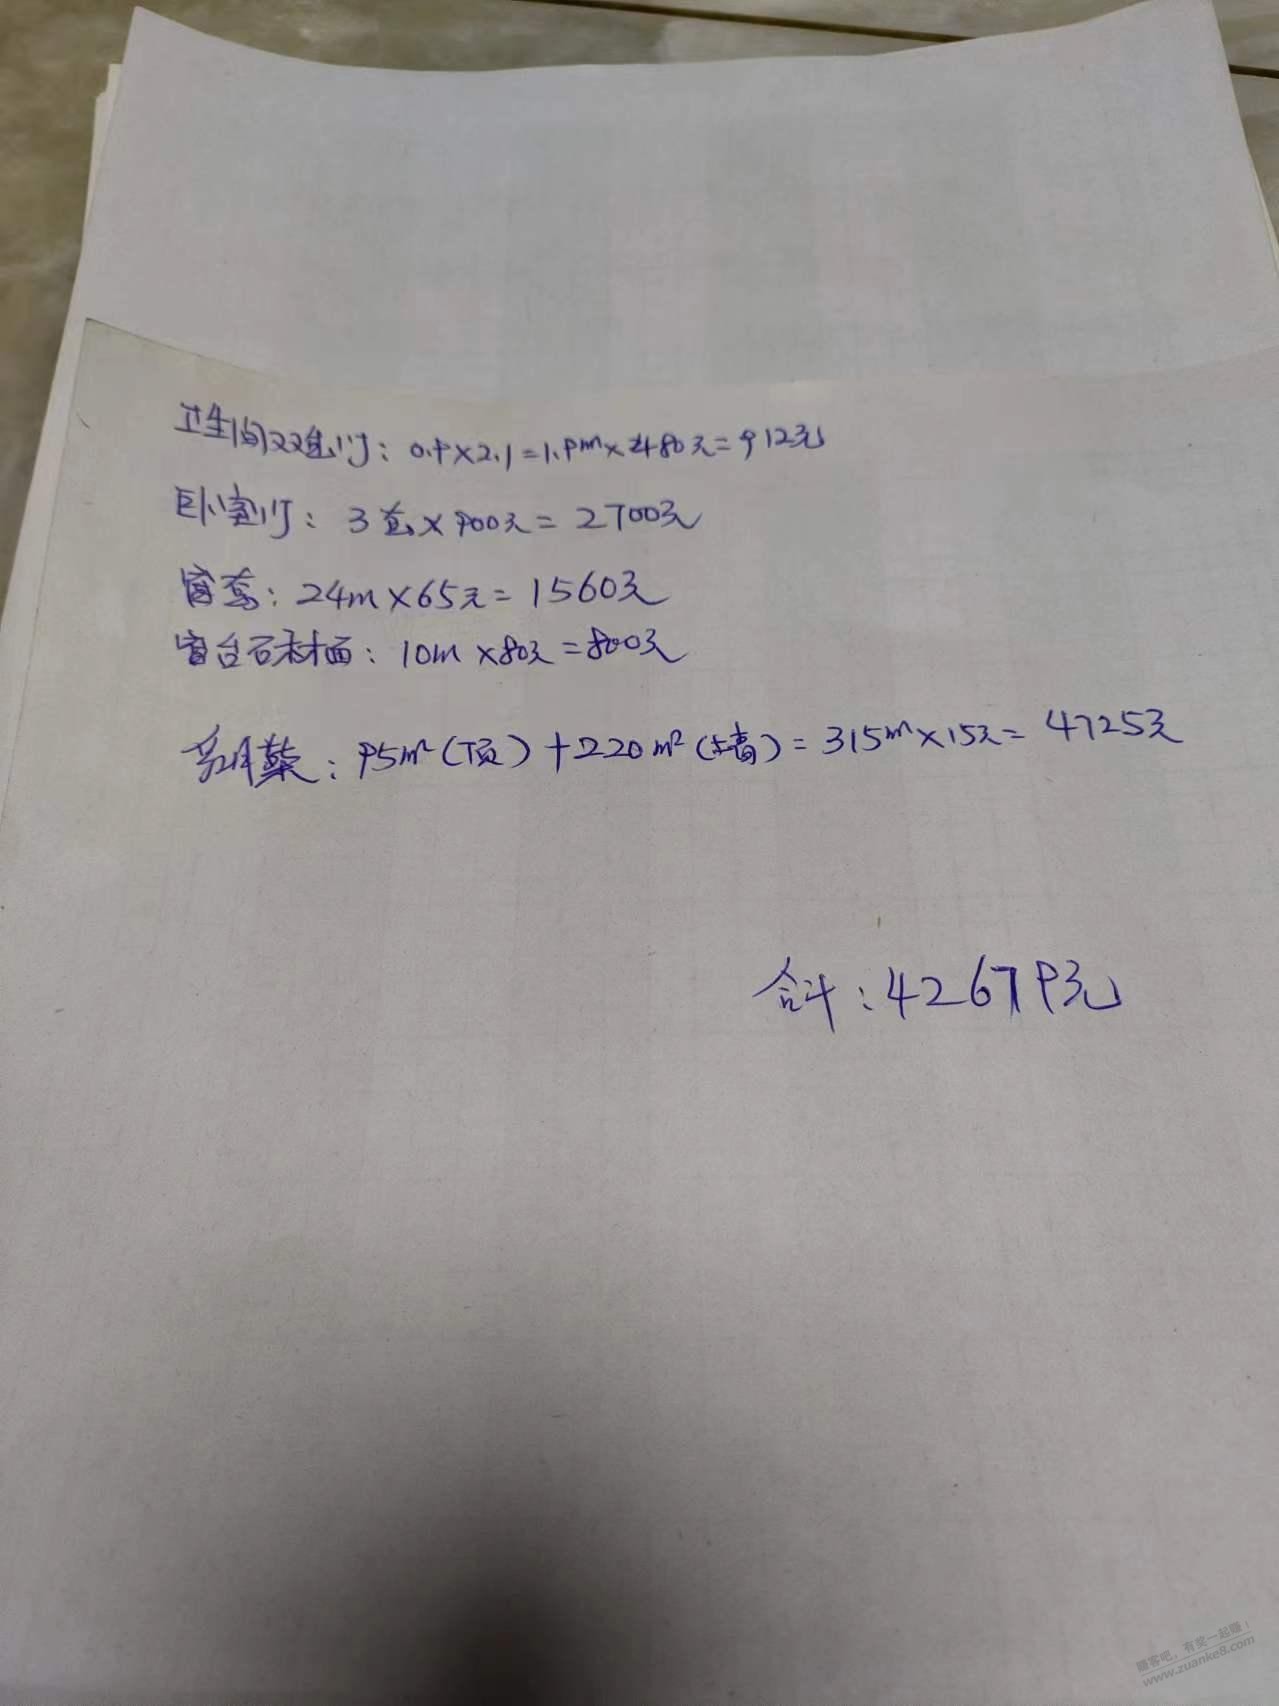 卫生间双包门：0.9×2.1=1.9m×480元=912元
卧室门：3套×900元=2700元
窗套：24m×65元=1560元
窗台石材面：10m×80元=800元
95m²（顶）+220m²（墙）=315m²×15元=4725元
合计：42679元
赚客吧，有奖一起赚！
www.zuanke8.com